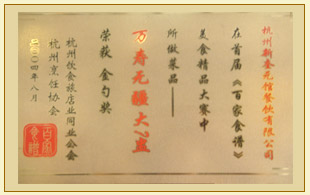 杭州新金元馆餐饮有限公司
在首届《百家食谱》
美食精品大赛中
所做菜品——
万寿无疆大弓皿
荣获金勺奖
杭州饮食旅店业同业公会
杭州烹饪协会
二〇〇四年八月